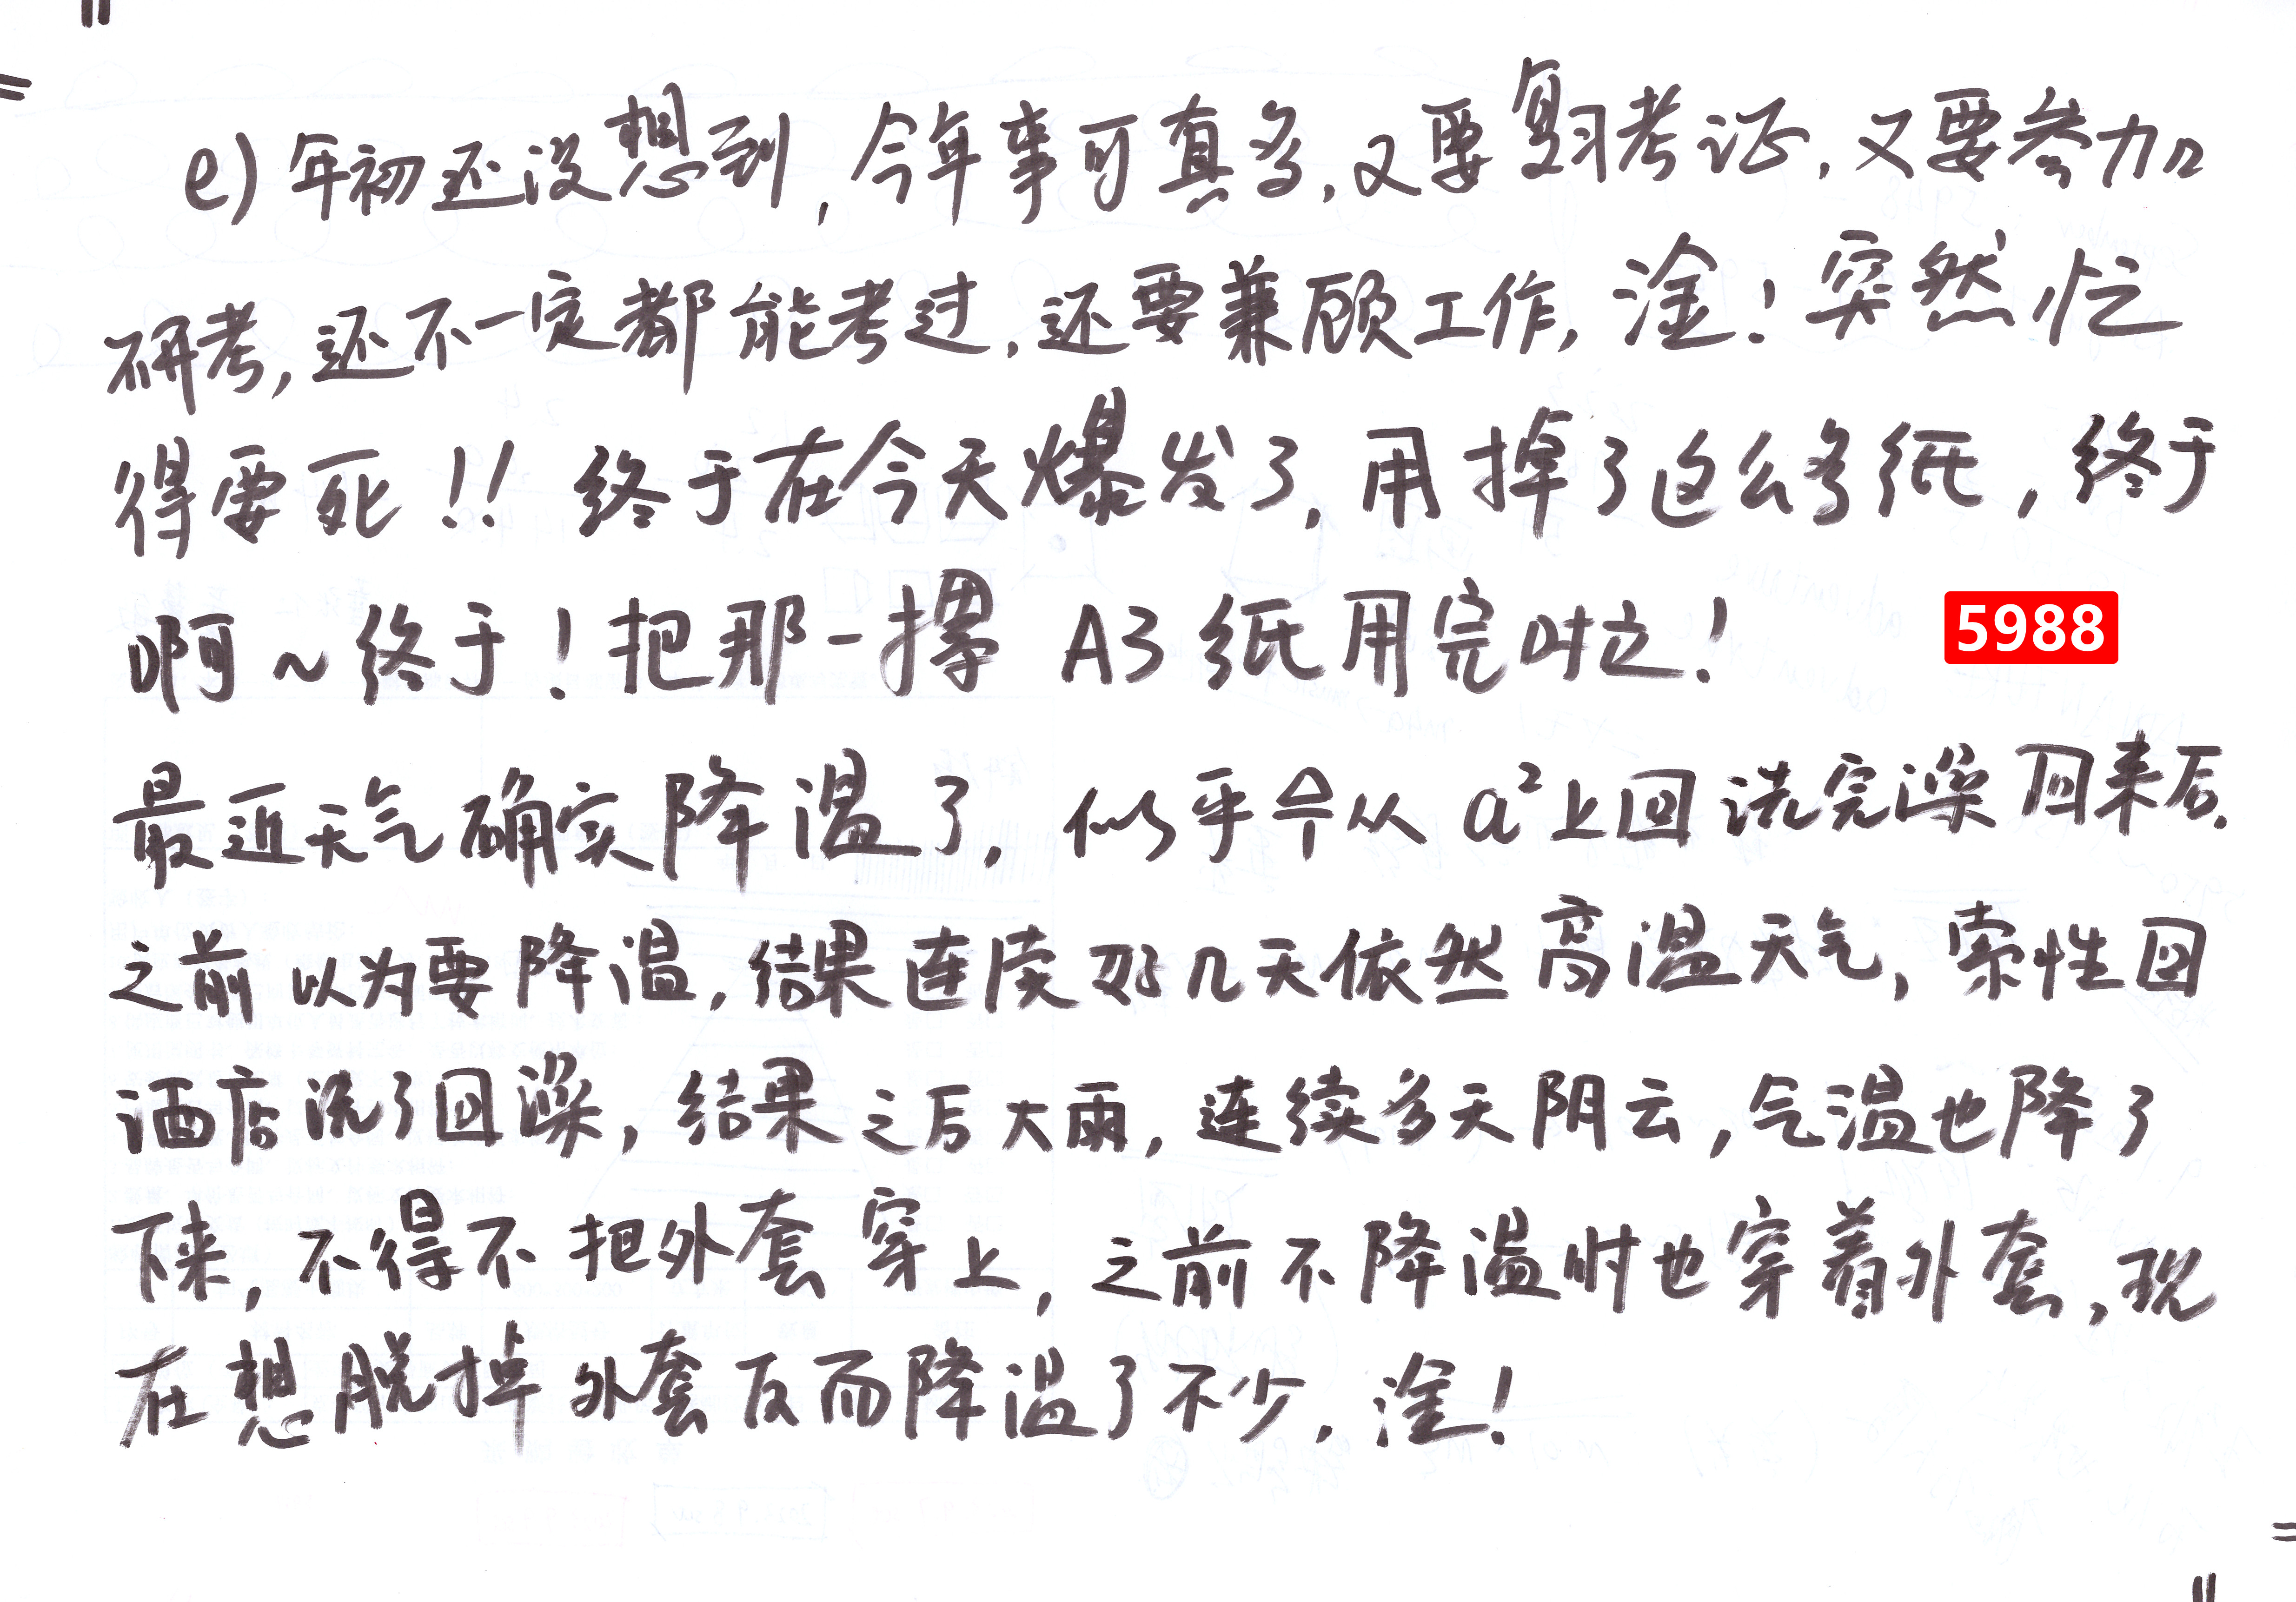 e) 年初还没想到,今年事可真多,又要复习考证,又要参加
研考,还不一定都能考过,还要兼顾工作,淦!突然忙
得要死!! 终于在今天爆发了,用掉了这么多纸,终于
啊~终于!把那一摞 A3纸用完时之!
5988
最近天气确实降温了,似乎从 a²上回洗完澡回来后.
之前以为要降温,结果连续好几天依然高温天气,索性回
酒店洗了回澡,结果之后大雨,连续多天阴云,气温也降了
下来,不得不把外套穿上,之前不降温时也穿着外套,现
在想脱掉外套反而降温了不少.淦!